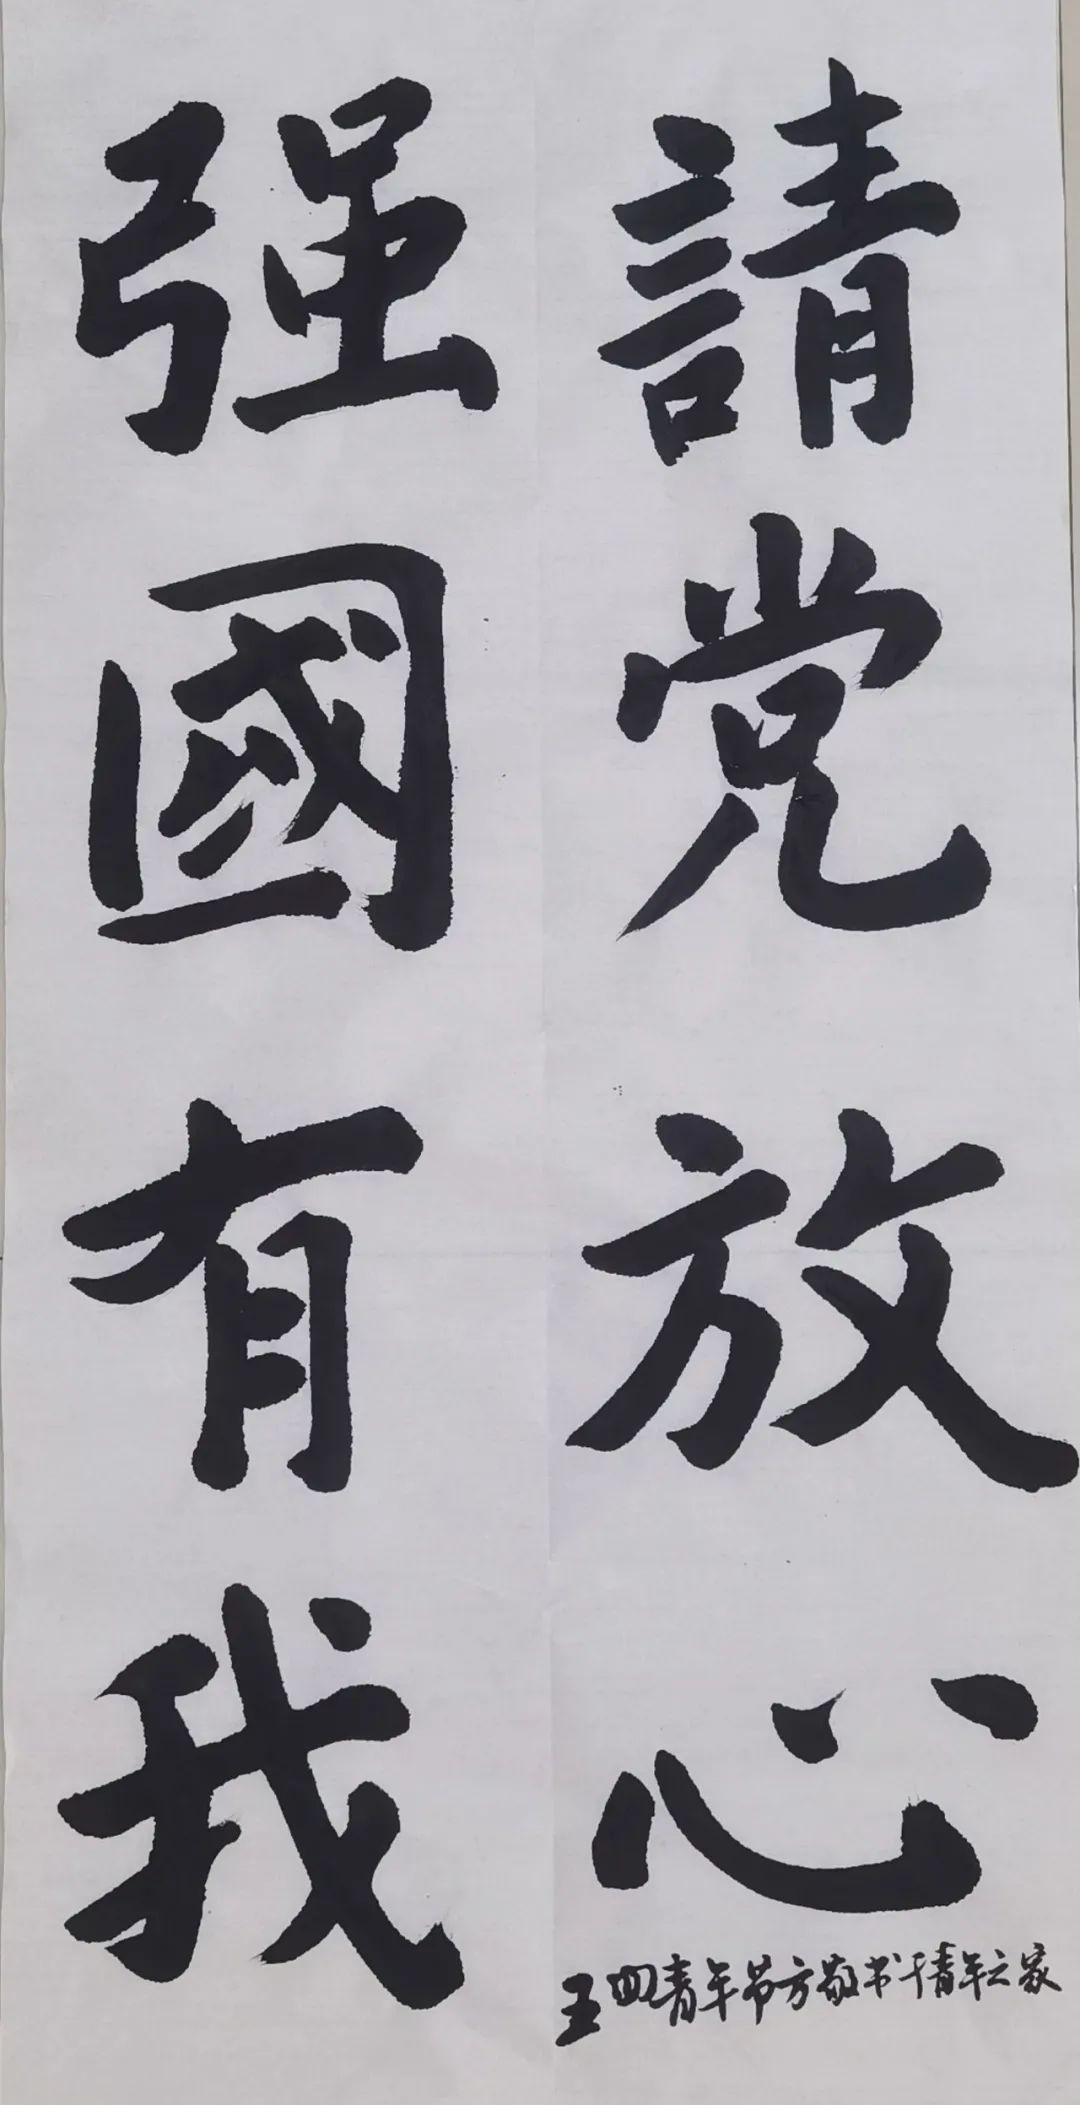 請党放心
强國有我
五四青年节方敬书于青年之家